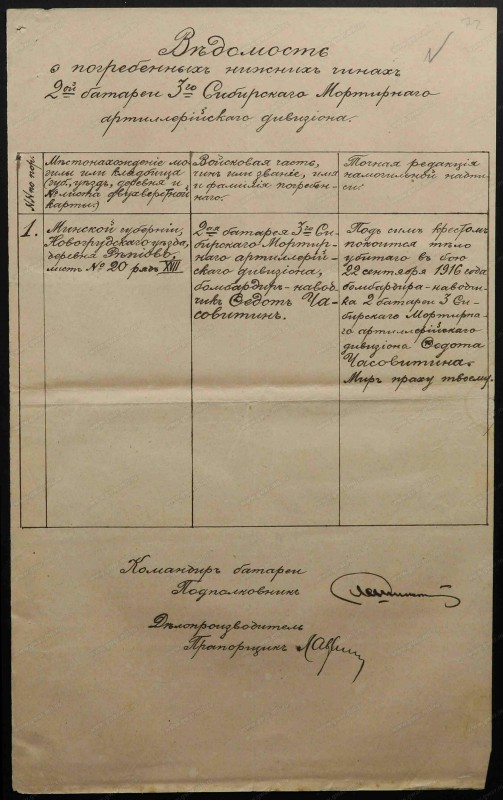 Вѣдомость
о погребенныхъ нижнихъ чинахъ
2ой батареи 3го Сибирскаго Мортирнаго
артиллерійскаго дивизіона.
№№ по пор.
Мѣстонахожденіе мо-
гилы или кладбища
(губ., уѣздъ, деревня и
№ листа двухверстной
карты)
Войсковая часть,
чинъ или званіе, имя
и фамилія погребен-
наго.
Точная редакція
намогильной надпи-
си:
1.
Минской губерніи,
Новогрудскаго уѣзда,
деревня
листъ № 20 рядъ XVII
2ая батарея 3го Си-
бирскаго Мортир-
наго артиллерій-
скаго дивизіона,
бомбардиръ-навод-
чикъ Ѳедотъ Ча-
совитинъ.
Подъ симъ крестомъ
покоится тѣло
убитаго въ бою
22 сентября 1916 года
бомбардира-наводчи-
ка 2 батареи 3 Си-
бирскаго Мортирна-
го артиллерійскаго
дивизіона Ѳедота
Часовитина.
Миръ праху твоему.
Командиръ батареи
Подполковникъ
Дѣлопроизводитель
Прапорщикъ